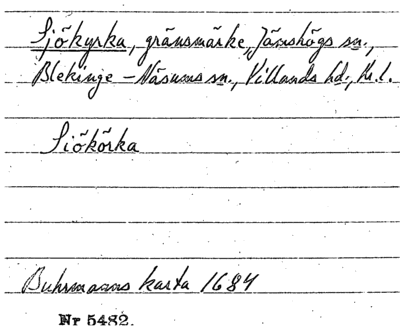 Sjökyrka, gränsmärke, Jämshögs sn.,
Blekinge – Näsums sn., Villands hd., Kr. l.
Siökörka
Buhrmanns karta 1684
Nr 5482.